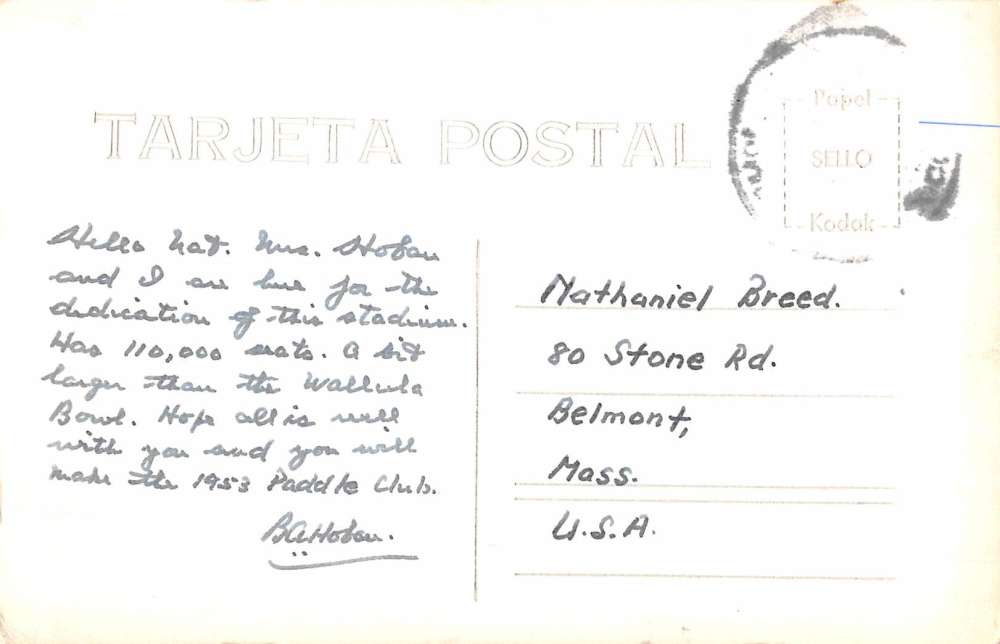 TARJETA POSTAL
Papel
SELLO
Kodak
Hello Nat. Mrs. Hoban
and I are here for the
dedication of this stadium.
Has 110,000 seats. A bit
larger than the Wallula
Bowl. Hope all is well
with you and you will
make the 1953 Paddle Club.
BAHoban.
Nathaniel Breed.
80 Stone Rd.
Belmont,
Mass.
U.S.A.